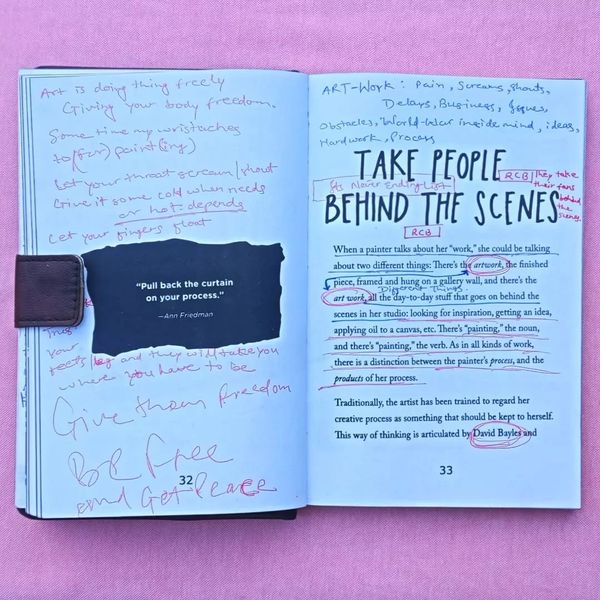 Art is doing thing freely
Giving your body freedom.
Some time my wrist aches
to (for) paint (ing)
Let your throat scream / shout
Give it some cold when needs
or hot: depends
Let your fingers float
"Pull back the curtain
on your process."
—Ann Friedman
Trust
your
feets and they will take you
where you have to be
Give them freedom
Be Free
and Get Peace
32
ART-Work: Pain, Screams, shouts,
Delays, Business, Issues,
Obstacles, World-War inside mind, ideas,
Hardwork, Process
Its Never Ending List
TAKE PEOPLE
BEHIND THE SCENES
RCB
They take
their fans
behind
the
scenes.
RCB
When a painter talks about her "work," she could be talking
about two different things: There's the artwork, the finished
piece, framed and hung on a gallery wall, and there's the
Different Things.
art work, all the day-to-day stuff that goes on behind the
scenes in her studio: looking for inspiration, getting an idea,
applying oil to a canvas, etc. There's "painting," the noun,
and there's "painting," the verb. As in all kinds of work,
there is a distinction between the painter's process, and the
products of her process.
Traditionally, the artist has been trained to regard her
creative process as something that should be kept to herself.
This way of thinking is articulated by David Bayles and
33